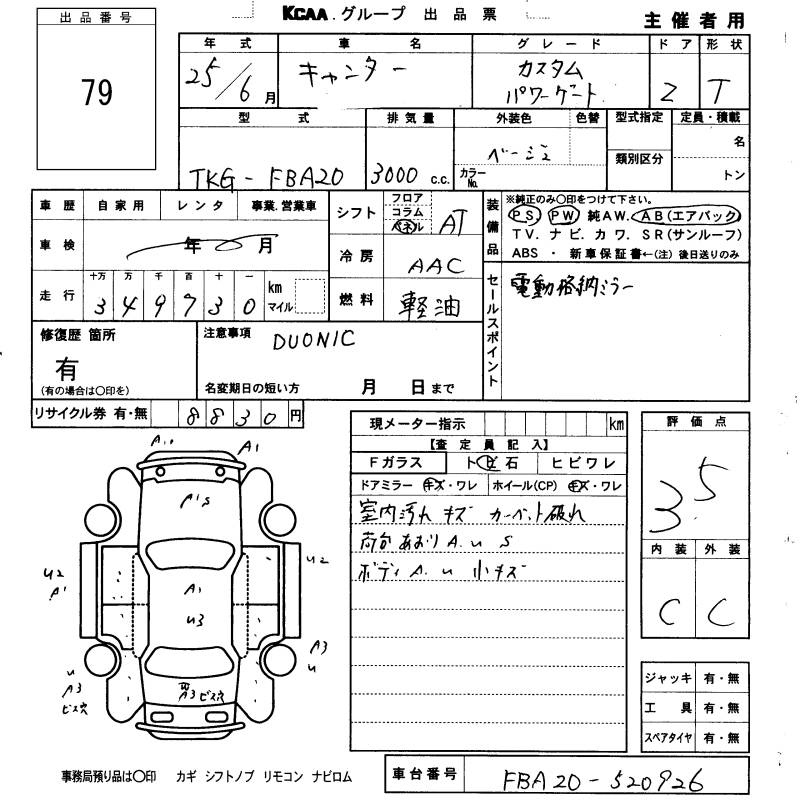 KCAA.グループ 出品票
主催者用
出品番号
79
年式 車名 グレード ドア 形状
25/6月 キャンター カスタム パワーゲート 2 T
型式 排気量 外装色 色替 型式指定 定員・積載
TKG-FBA20 3000 c.c. ベージュ カラーNo. 類別区分 名 トン
車歴 自家用 レンタ 事業.営業車
車検 年 月
走行 十万 万 千 百 十 一
349730 km マイル
シフト フロア コラム パネル AT
冷房 AAC
燃料 軽油
装備品 ※純正のみ○印をつけて下さい。
PS. PW 純AW. AB(エアバック)
TV. ナビ. カワ. SR(サンルーフ)
ABS ・ 新車保証書←(注)後日送りのみ
セールスポイント 電動格納ミラー
修復歴 箇所
有
(有の場合は○印を)
注意事項 DUONIC
名変期日の短い方 月 日まで
リサイクル券 有・無 8830円
現メーター指示 km
【査定員記入】
Fガラス トビ石 ヒビワレ
ドアミラー キズ・ワレ ホイール(CP) キズ・ワレ
室内汚れ キズ カーペット破れ
荷台あおりA.u S
ボディA.u 小キズ
評価点
3.5
内装 外装
C C
A1 A1
A1S
U2 A1 A1 U2
U3
U A3 ビス穴 A3 ビス穴 A3 U
ジャッキ 有・無
工具 有・無
スペアタイヤ 有・無
事務局預り品は○印 カギ シフトノブ リモコン ナビロム
車台番号 FBA20-520926